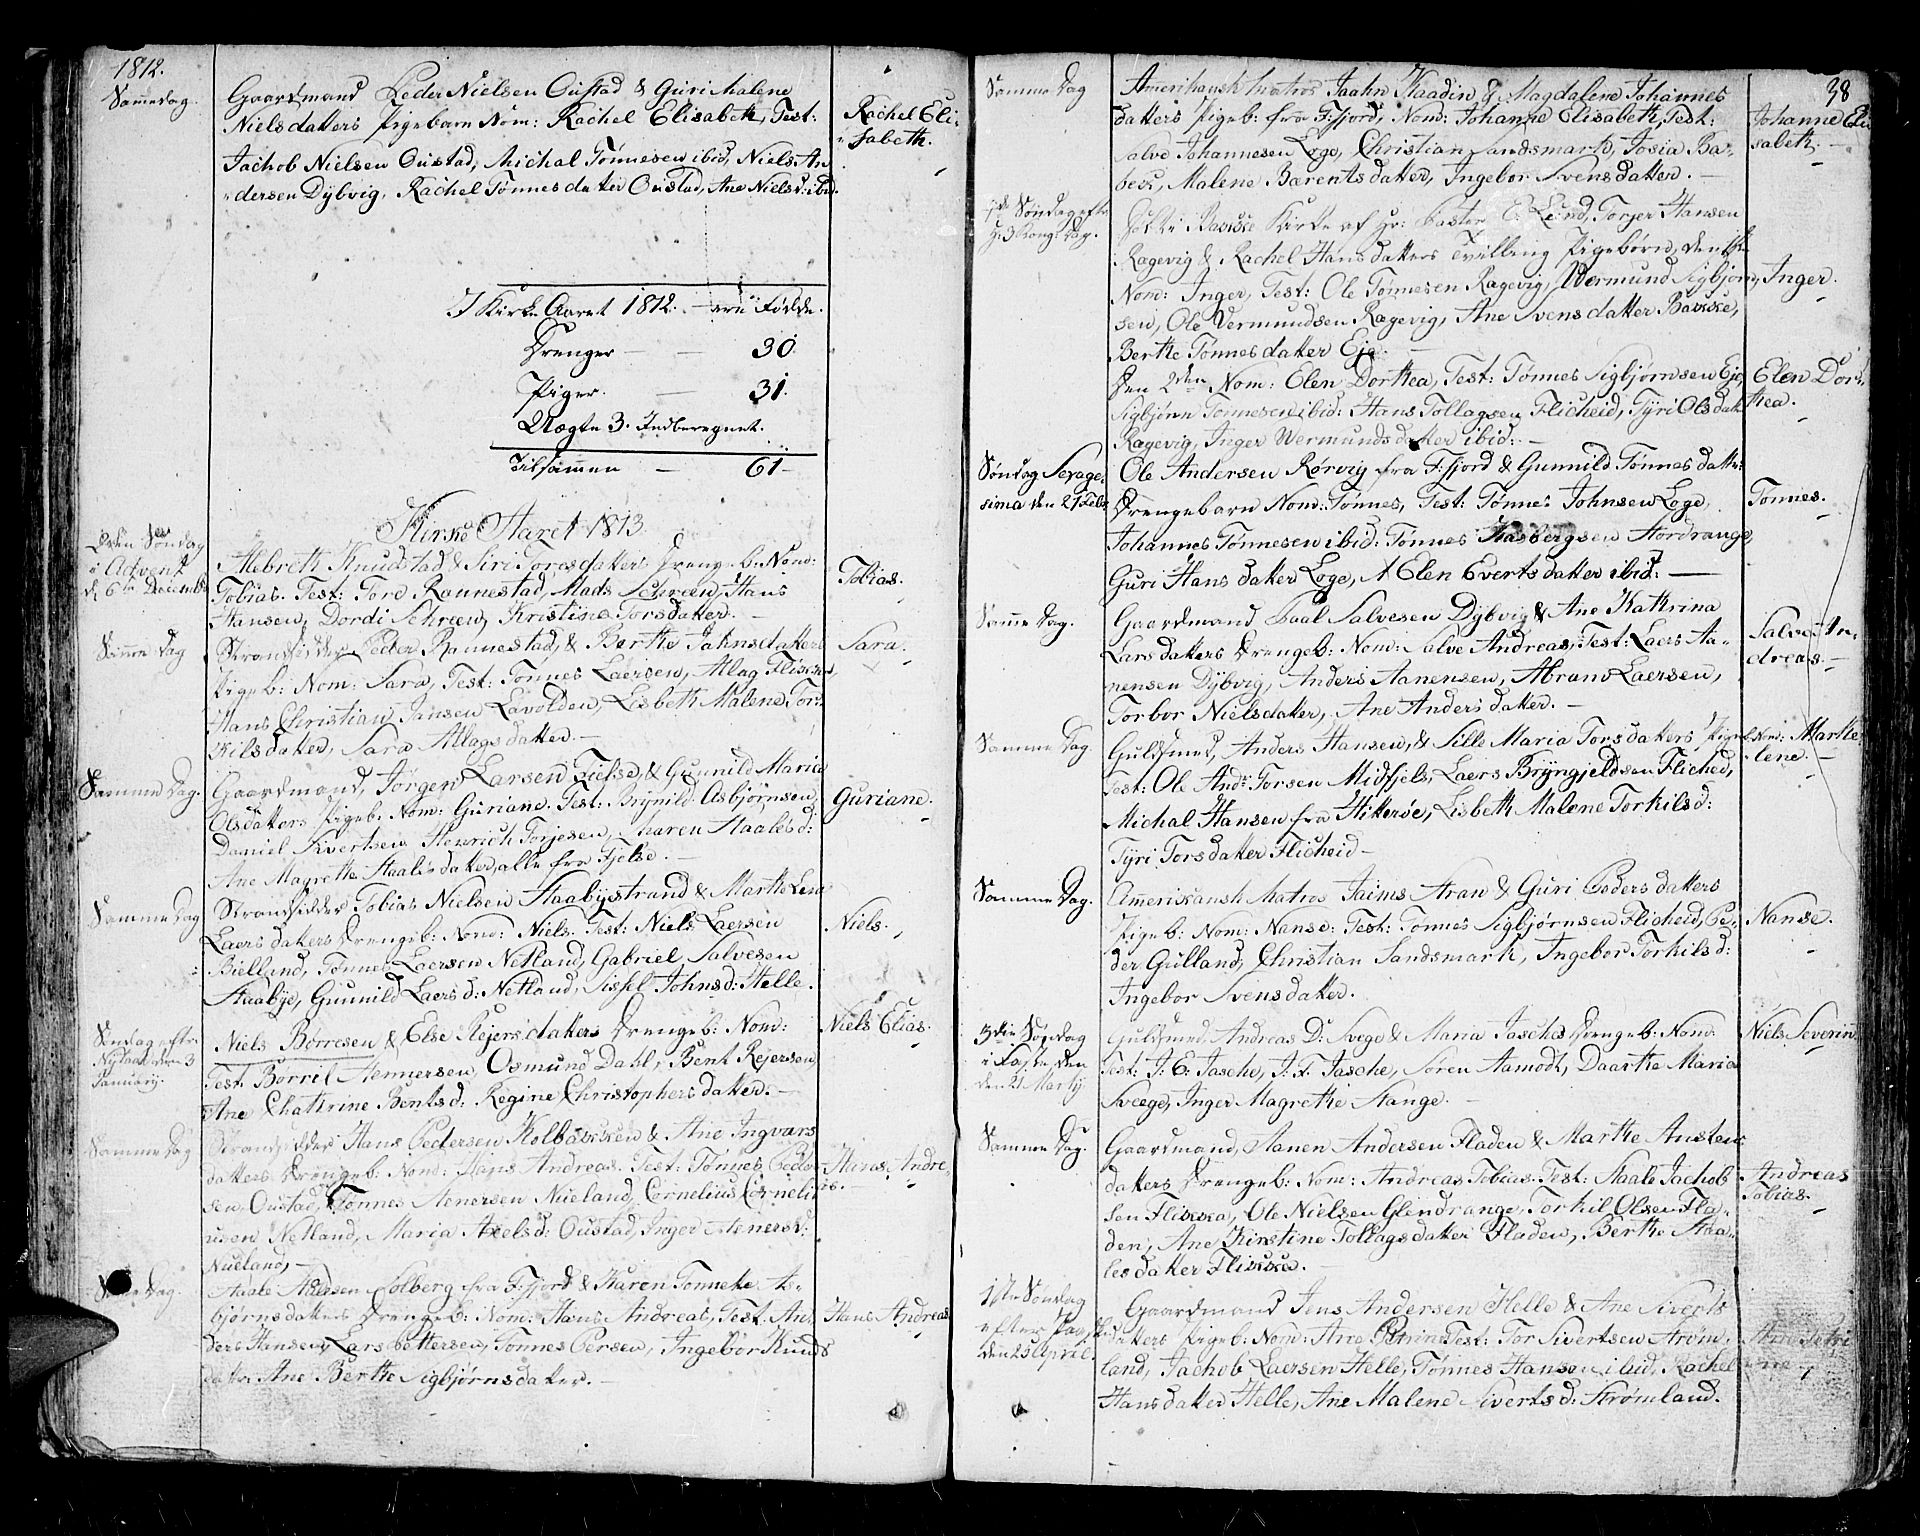 1812.
Sammedag.
Gaardmand Peder Nielsen Oustad & Guri Malene
Nielsdatters Pigebarn Nom: Rachel Elisabeth, Test:
Jachob Nielsen Oustad, Michal Tönnesen ibid, Niels An
dersen Dÿbvig, Rachel Tönnesdatter Oustad, Ane Nielsd: ibid.
Rachel Eli-
sabeth.
I Kirke Aaret 1812. – ere Fødde.
Drenger — — 30.
Piger. — 31.
Uægte 3. Indberegnet.
Tilsammen — 61–
Kirke Aaret 1813.
2den Søndag
i Advent
d. 6te December
Alebreth Knudstad & Siri Torasdatters Drengeb: Nom:
Tobias. Test: Tore Rannestad, Mads Schreen, Hans
Hansen, Dordi Schreen, Kristine Torsdatter.
Tobias.
Samme Dag
Strandsidder Peder Rannestad, & Berthe Jahnsdatters
Pigeb: Nom: Sara, Test: Tönnes Laersen, Atlag Flikke
Hans Christian Jansen Lavolden, Lisbeth Malene Tor-
kilsdatter, Sara Atlagsdatter.
Sara.
Samme Dag.
Gaardmand, Jørgen Larsen Fielse, & Gunnild Maria
Olsdatters Pigeb: Nom: Guriane. Test: Brÿnild Asbjørnsen,
Daniel Sivertsen, Henrich Torjesen, Maren Staalesd:
Ane Magrethe Staalesdatter, alle fra Fjelse.
Guriane.
Samme Dag
Strandsidder Tobias Nielsen Staabÿestrand & Marthe Lena
Laersdatters Drengeb: Nom: Niels. Test: Niels Laersen
Bielland, Tönnes Laersen Netland, Gabriel Salvesen
Staabÿe, Gunnild Laersd: Netland, Sissel Johnsd: Helle.
Niels.
Søndag efter
Nytaar den 3
Januarÿ.
Niels Börresen & Else Rejersdatters Drengeb: Nom:
Test: Borril Aennersen, Osmund Dahl, Bent Rejersen,
Ane Chatrine Bentsd: Regine Christophersdatter.
Niels Elias.
Samme Dag
Strandsidder Hans Pedersen Kolbakken & Ane Ingvars
datters Drengeb: Nom: Hans Andreas. Test: Tönnes Peder
sen Oustad, Tönnes Aenersen Nieland, Cornelius Corneli
usen Netland, Maria Axelsd: Oustad, Inger Aenersd:
Nueland,
Hans Andre-
as.
Dag.
Solberg fra F:fjord & Karen Tonnete As-
bjørnsdatters Drengeb: Nom: Hans Andreas, Test: An
ders Hansen, Lars Pettersen, Tönnes Persen, Ingebör Knuds
datter Ane Berthe Sigbjørnsdatter.
Hans Andreas
38
Samme Dag
Amerikansk Matros Jaahn Kaadin & Magdalene Johannes
datters Pigeb: fra F:fjord, Nom: Johanne Elisabeth, Test:
Salve Johannesen Loge, Christian Sandsmark, Josia Ba-
beck, Malene Bærentsdatter, Ingebor Svensdatter.
Johanne Eli
sabeth.
Søndag efter
H. 3 Kong: Dag.
Døbt i Bakke Kirke af Hr: Pastor E. Lund, Torjer Hansen
Ragevig & Rachel Hansdatters Tvilling Pigebørn, den 1ste
Nom: Inger, Test: Ole Tönnesen Ragevig, Wermund Sigbjørn
sen, Ole Vermundsen Ragevig, Ane Svensdatter Bakke,
Berthe Tønnesdatter Eje.
Inger.
Den 2den Nom: Elen Dorthea, Test: Tønnes Sigbjørnsen Eje,
Sigbjørn Tonnesen ibid: Hans Tollagsen Flicheid, Tÿri Olsdatter
Ragevig, Inger Wermundsdatter ibid:
Elen Dor-
thea.
Søndag Sexage-
sima den 21 Febr.
Ole Andersen Rørvig fra F:fjord & Gunnild Tönnesdatters
Drengebarn Nom: Tönnes, Test: Tönnes Johnsen Loge,
Johannes Tönnesen ibid: Tönnes Aasbergsen Hordrange,
Guri Hansdatter Loge, A Elen Evertsdatter ibid:
Tønnes.
Samme Dag.
Gaardmand Paal Salvesen Dÿbvig & Ane Kathrina
Larsdatters Drengeb: Nom: Salve Andreas, Test: Laers Aa-
nensen Dÿbvig, Anders Aanensen, Abram Laersen,
Torbor Nielsdatter, Ane Andersdatter.
Salve An-
dreas
Samme Dag.
Guldsmed, Anders Hansen, & Sille Maria Torsdatters Pigeb: Nom: Marthe
Test: Ole Andr: Torsen Midfjels, Laers Brÿngjeldsen Fliched,
Michal Hansen fra Hitterøe, Lisbeth Malene Torkilsd:
Tÿri Torsdatter Flicheid
lene.
Samme Dag.
Amerikansk Matros Jaims Aran & Guri Pedersdatters
Pigeb: Nom: Nanse. Test: Tönnes Sigbjørnsen Flicheid, Pe-
der Gulland, Christian Sandsmark, Ingebor Torkilsd:
Ingebor Svensdatter.
Nanse.
3die Søndag
i Faste, den
den 21 Martÿ
Guldsmed, Andreas D: Svege & Maria Jasches Drengeb: Nom:
Test: J. E: Jasche, J. F. Jasche, Sören Aamodt, Daarthe Maria
Sveege, Inger Magrethe Stange.
Niels Severin
Samme Dag.
Gaardmand, Aanen Andersen Fladen & Marthe Austens
datters Drengeb: Nom: Andreas Tobias. Test: Staale Jachob
sen Flikka, Ole Nielsen Glendrange, Torkil Olsen Fla-
den, Ane Kirstine Tollagsdatter Fladen, Berthe Staa-
lesdatter Flikke.
Andreas
Tobias.
1ste Søndag
efter Paaske
den 25 April.
Gaardmand Jens Andersen Helle & Ane Siverts
datters Pigeb: Nom: Ane Petrine Test: Tor Sivertsen Strøm-
land, Jachob Laersen Helle, Tønnes Hansen ibid, Rachel
Hansdatter Helle, Ane Malene Sivertsd: Strømland.
Ane Petri
ne